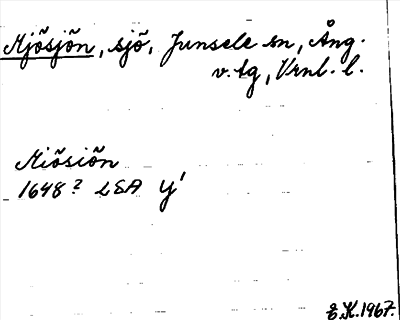 Mjösjön, sjö, Junsele sn, Ång.
v. tg, Vrnl. l.
Miösiön
1648? LSA Y'
E.K. 1967.